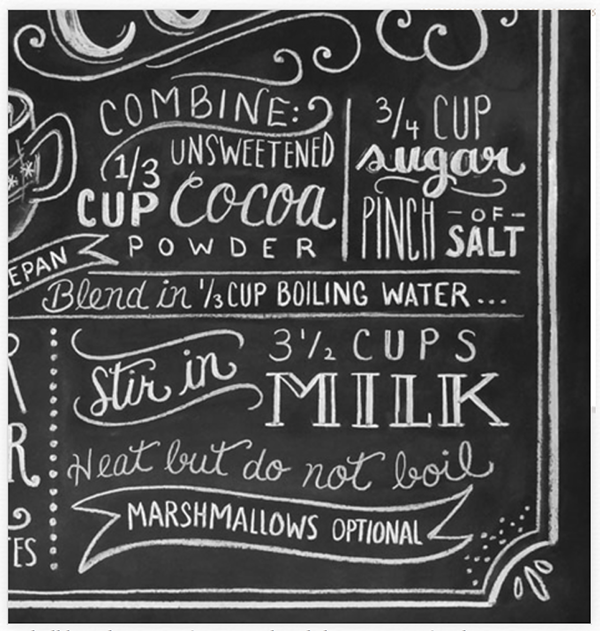 COMBINE:
1/3 UNSWEETENED
CUP Cocoa
POWDER
3/4 CUP
sugar
PINCH -OF- SALT
EPAN
Blend in 1/3 CUP BOILING WATER...
Stir in 3 1/2 CUPS
MILK
Heat but do not boil
MARSHMALLOWS OPTIONAL
R
TES